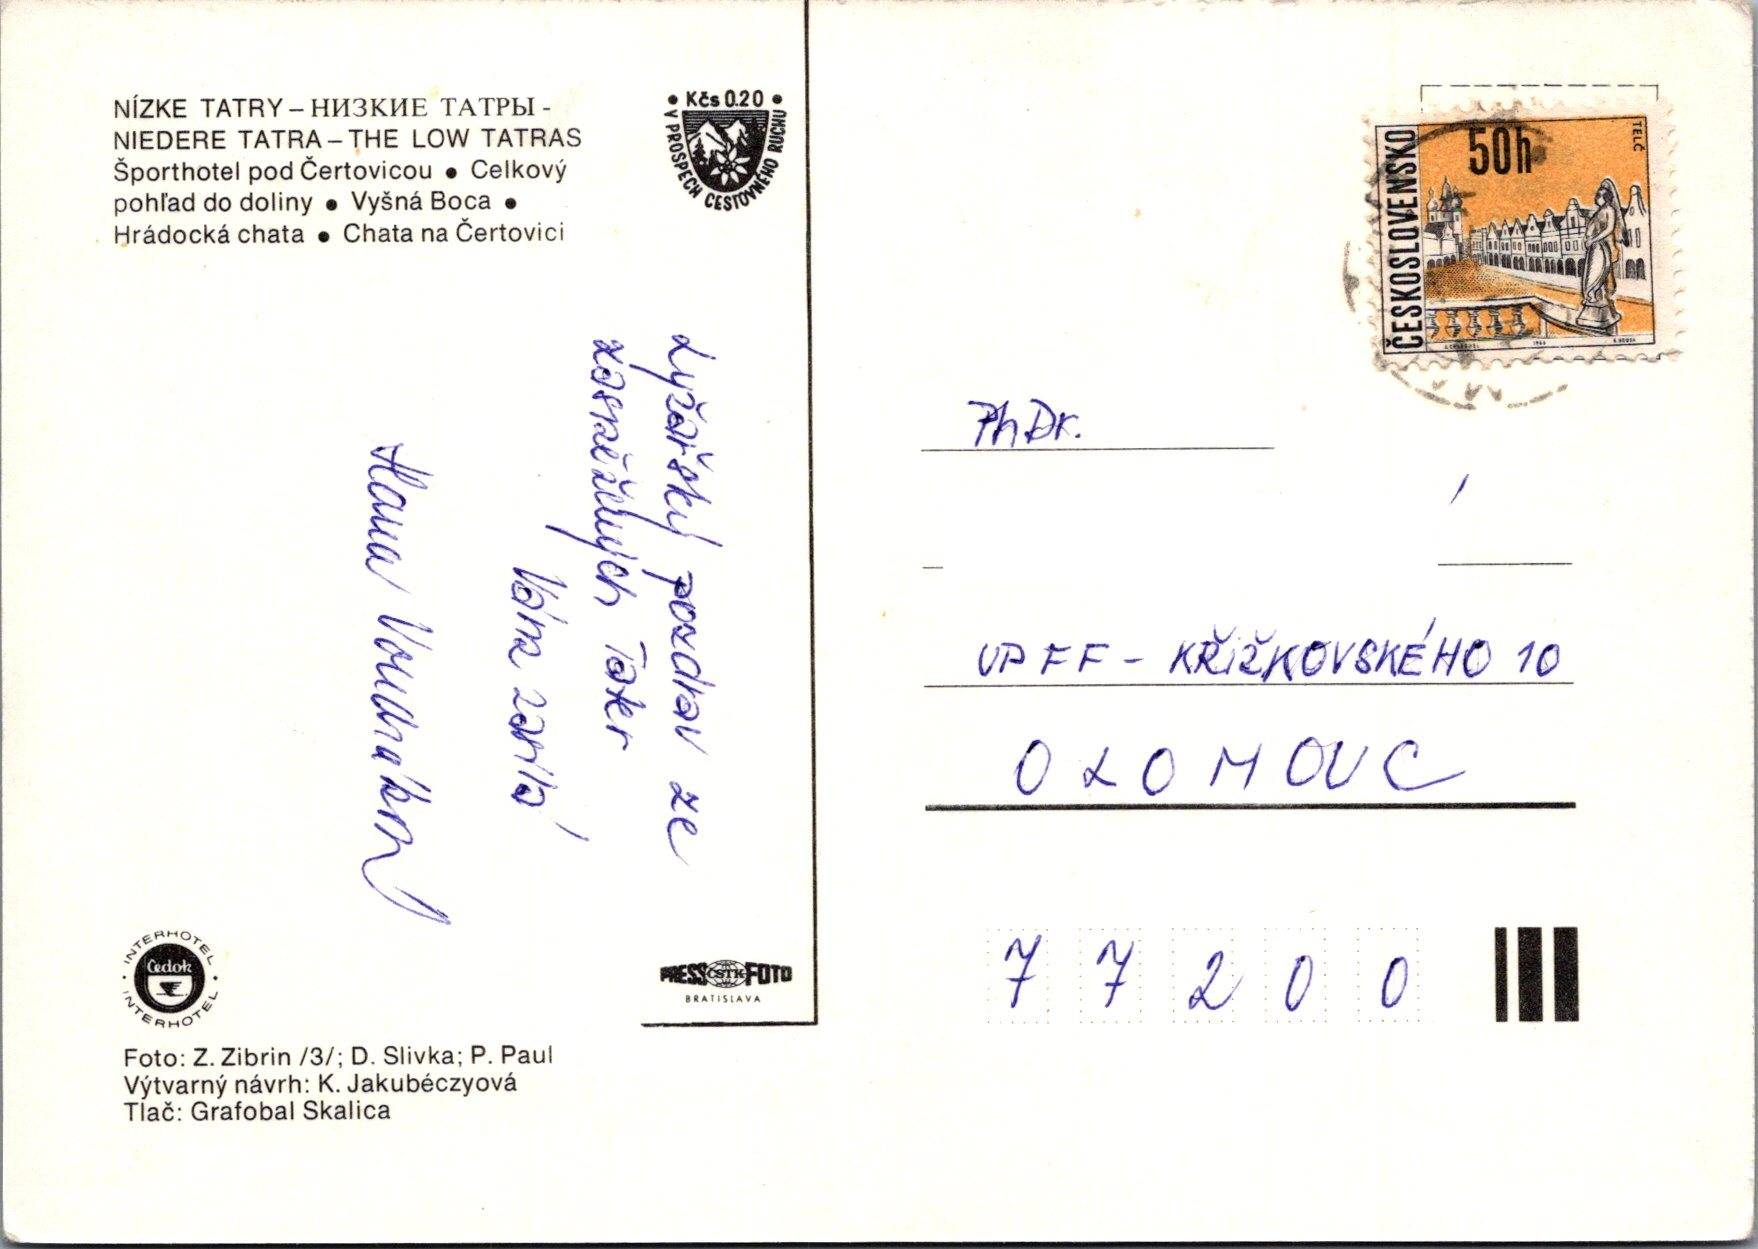 NÍZKE TATRY – НИЗКИЕ ТАТРЫ -
NIEDERE TATRA – THE LOW TATRAS
Športhotel pod Čertovicou • Celkový
pohľad do doliny • Vyšná Boca •
Hrádocká chata • Chata na Čertovici
• Kčs 0.20 •
V PROSPECH CESTOVNÉHO RUCHU
Lyžařský pozdrav ze
zasněžených Tater
Hana
INTERHOTEL
Čedok
INTERHOTEL
PRESS ČSTK FOTO
BRATISLAVA
Foto: Z. Zibrin /3/; D. Slivka; P. Paul
Výtvarný návrh: K. Jakubéczyová
Tlač: Grafobal Skalica
ČESKOSLOVENSKO
50h
TELČ
1966
PhDr.
UP FF - KŘÍŽKOVSKÉHO 10
OLOMOUC
77200